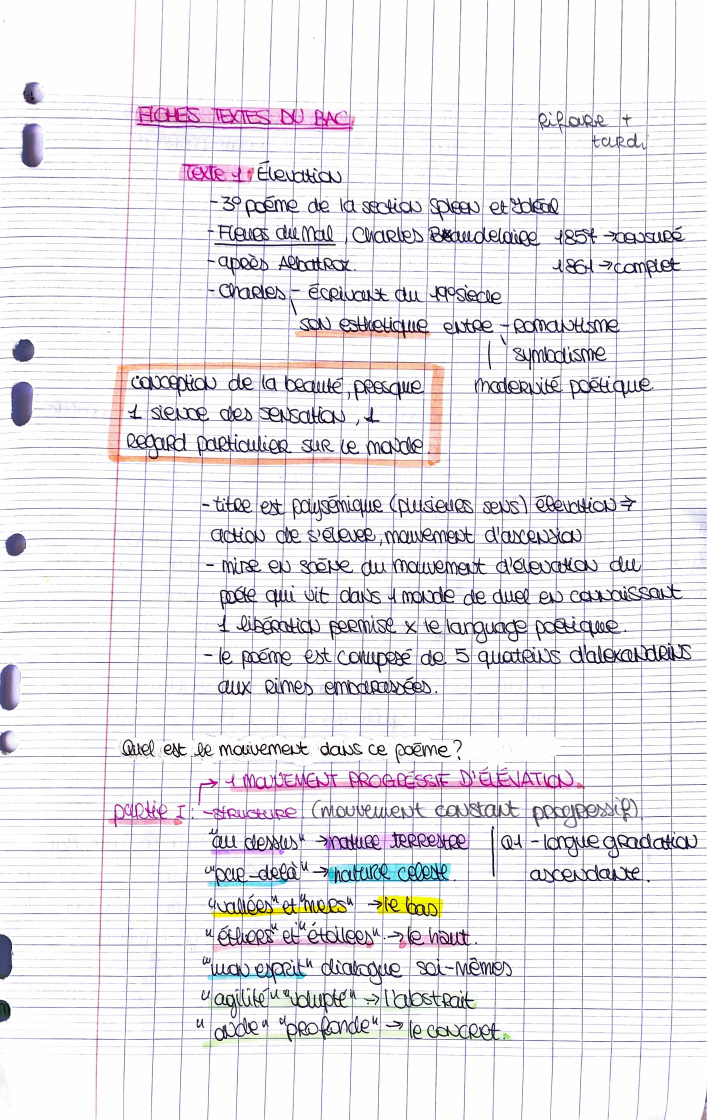 FICHES TEXTES DU BAC.
Rifaire +
tardi
Texte 1: Élevation
- 3º poème de la section Spleen et Idéal
- Fleurs du Mal, Charles Baudelaire 1857 → censuré
- après Albatrox. 1861 → complet
- Charles - écrivant du 19º siècle
son esthetique entre - romantisme
symbolisme
modernité poétique
conception de la beauté, presque
1 sience des sensation, 1
regard particulier sur le monde.
- titre est polysémique (plusieurs sens) élevation →
action de s'élever, mouvement d'ascension
- mise en scène du mouvement d'élevation du
poète qui vit dans 1 monde de duel en connaissant
1 libération permise x le language poétique.
- le poème est composé de 5 quatrins d'alexandrins
aux rimes embarassées.
Quel est le mouvement dans ce poème?
→ 1 MOUVEMENT PROGRESSIF D'ÉLÉVATION.
partie I: - structure (mouvement constant progressif)
"au dessus" → nature terrestre | Q1 - longue gradation
"par-delà" → nature celeste. ascendante.
"vallées" et "mers" → le bas
"éthers" et "étoilees" → le haut.
"mon esprit" dialogue soi-mêmes
"agilité" "volupté" → l'abstrait
"onde" "profonde" → le concret.